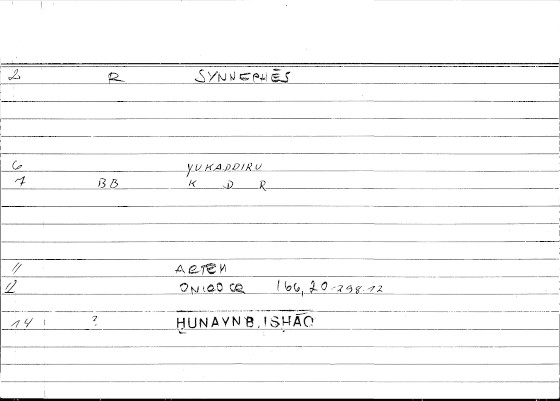 2 R SYNNEPHĒS
6 YUKADDIRU
7 BB K D R
11 AETEN
12 ONIOOCR 166,20-298.12
14 ? ḤUNAYN B. ISḤĀQ